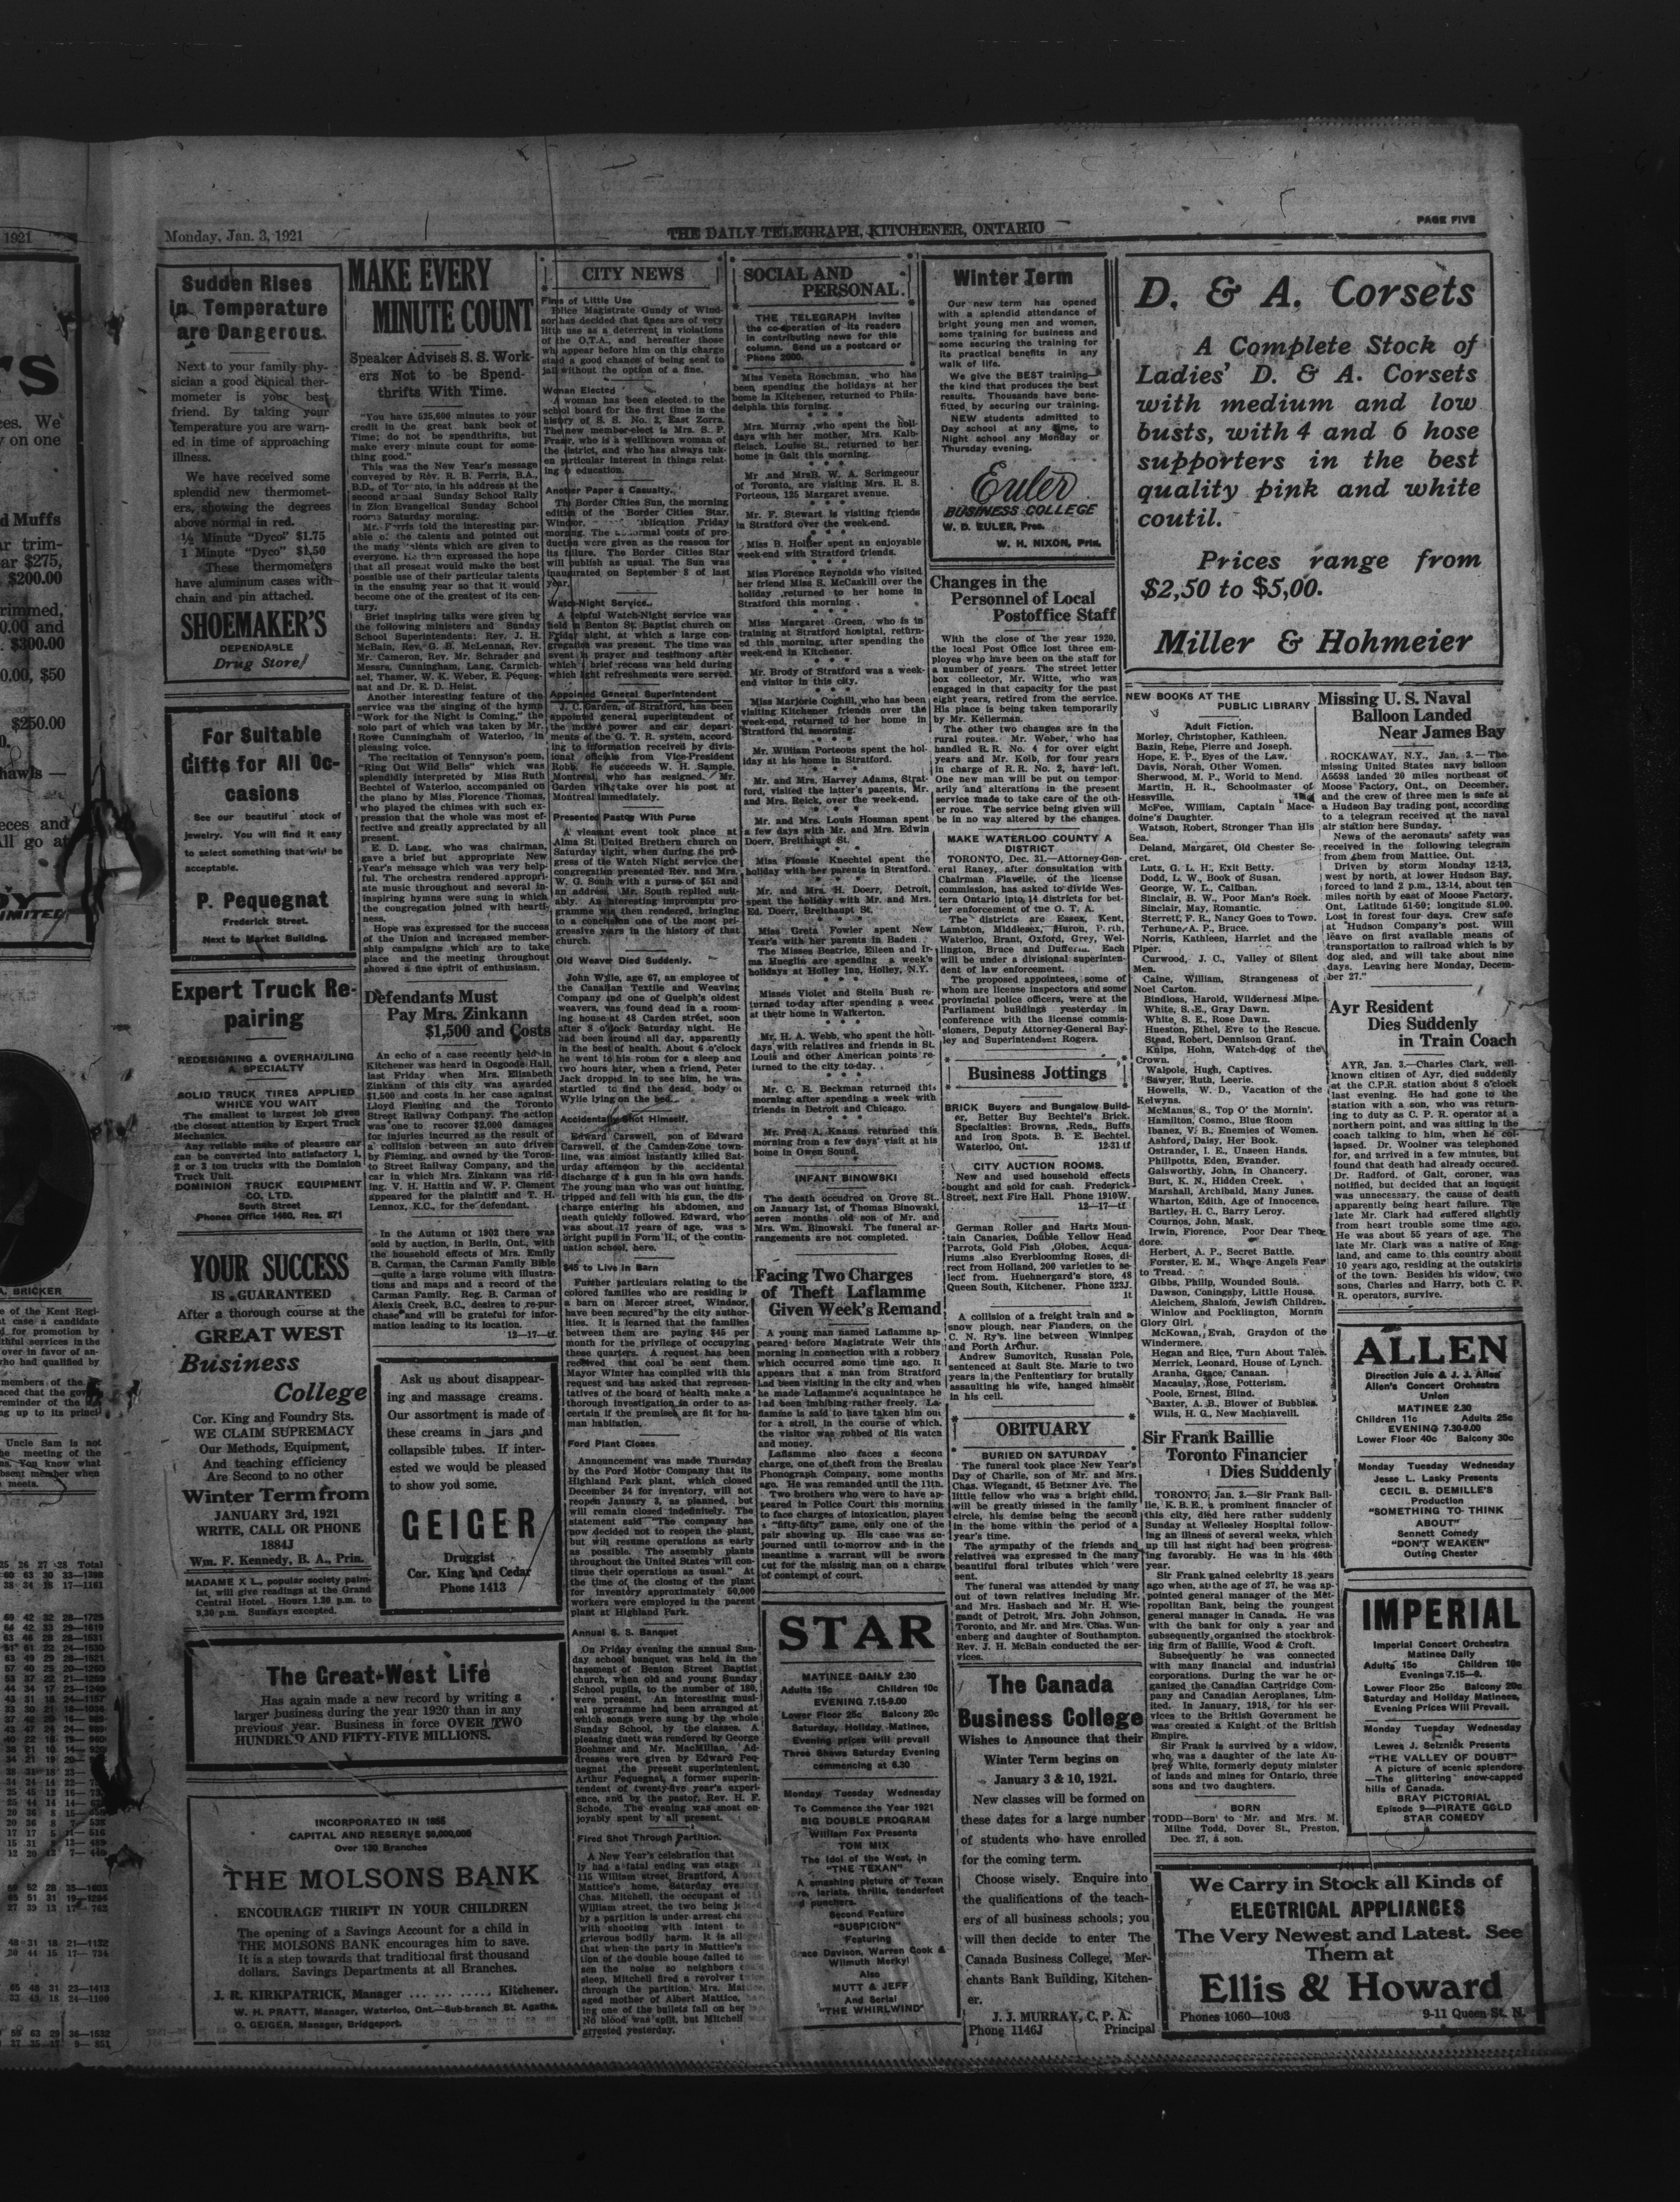 Monday, Jan. 3, 1921
THE DAILY TELEGRAPH, KITCHENER, ONTARIO
PAGE FIVE
Sudden Rises
in Temperature
are Dangerous
Next to your family phy-
sician a good clinical ther-
mometer is your best
friend. By taking your
temperature you are warn-
ed in time of approaching
illness.
We have received some
splendid new thermomet-
ers, showing the degrees
above normal in red.
½ Minute "Dyco" $1.75
1 Minute "Dyco" $1.50
These thermometers
have aluminum cases with
chain and pin attached.
SHOEMAKER'S
DEPENDABLE
Drug Store
For Suitable
Gifts for All Oc-
casions
See our beautiful stock of
jewelry. You will find it easy
to select something that will be
acceptable.
P. Pequegnat
Frederick Street.
Next to Market Building.
Expert Truck Re-
pairing
REDESIGNING & OVERHAULING
A SPECIALTY
SOLID TRUCK TIRES APPLIED
WHILE YOU WAIT
The smallest to largest job given
the closest attention by Expert Truck
Mechanics.
Any reliable make of pleasure car
can be converted into satisfactory 1,
2 or 3 ton trucks with the Dominion
Truck Unit.
DOMINION TRUCK EQUIPMENT
CO. LTD.
South Street
Phones Office 1460, Res. 871
YOUR SUCCESS
IS GUARANTEED
After a thorough course at the
GREAT WEST
Business
College
Cor. King and Foundry Sts.
WE CLAIM SUPREMACY
Our Methods, Equipment,
And teaching efficiency
Are Second to no other
Winter Term from
JANUARY 3rd, 1921
WRITE, CALL OR PHONE
1884J
Wm. F. Kennedy, B. A., Prin.
MADAME X L., popular society palm-
ist, will give readings at the Grand
Central Hotel. Hours 1.30 p.m. to
9.30 p.m. Sundays excepted.
The Great-West Life
Has again made a new record by writing a
larger business during the year 1920 than in any
previous year. Business in force OVER TWO
HUNDRED AND FIFTY-FIVE MILLIONS.
INCORPORATED IN 1855
CAPITAL AND RESERVE $9,000,000
Over 130 Branches
THE MOLSONS BANK
ENCOURAGE THRIFT IN YOUR CHILDREN
The opening of a Savings Account for a child in
THE MOLSONS BANK encourages him to save.
It is a step towards that traditional first thousand
dollars. Savings Departments at all Branches.
J. R. KIRKPATRICK, Manager ... ....... Kitchener.
W. H. PRATT, Manager, Waterloo, Ont.—Sub-branch St. Agatha.
O. GEIGER, Manager, Bridgeport.
MAKE EVERY
MINUTE COUNT
Speaker Advises S. S. Work-
ers Not to be Spend-
thrifts With Time.
"You have 525,600 minutes to your
credit in the great bank book of
Time; do not be spendthrifts, but
make every minute count for some-
thing good."
This was the New Year's message
conveyed by Rev. R. B. Ferris, B.A.,
B.D., of Toronto, in his address at the
second annual Sunday School Rally
in Zion Evangelical Sunday School
room Saturday morning.
Mr. Ferris told the interesting par-
able of the talents and pointed out
the many talents which are given to
everyone. He then expressed the hope
that all present would make the best
possible use of their particular talents
in the ensuing year so that it would
become one of the greatest of its cen-
tury.
Brief inspiring talks were given by
the following ministers and Sunday
School Superintendents: Rev. J. H.
McBain, Rev. G. B. McLennan, Rev.
Mr. Cameron, Rev. Mr. Schrader and
Messrs. Cunningham, Lang, Carmich-
ael, Thamer, W. K. Weber, E. Pequeg-
nat and Dr. E. D. Heist.
Another interesting feature of the
service was the singing of the hymn
"Work for the Night is Coming," the
solo part of which was taken by Mr.
Rowe Cunningham of Waterloo, in
pleasing voice.
The recitation of Tennyson's poem,
"Ring Out Wild Bells" which was
splendidly interpreted by Miss Ruth
Bechtel of Waterloo, accompanied on
the piano by Miss Florence Thomas,
who played the chimes with such ex-
pression that the whole was most ef-
fective and greatly appreciated by all
present.
E. D. Lang, who was chairman,
gave a brief but appropriate New
Year's message which was very help-
ful. The orchestra rendered appropri-
ate music throughout and several in-
inspiring hymns were sung in which
the congregation joined with hearti-
ness.
Hope was expressed for the success
of the Union and increased member-
ship campaigns which are to take
place and the meeting throughout
showed a fine spirit of enthusiasm.
Defendants Must
Pay Mrs. Zinkann
$1,500 and Costs
An echo of a case recently held in
Kitchener was heard in Osgoode Hall,
last Friday when Mrs. Elizabeth
Zinkann of this city was awarded
$1,500 and costs in her case against
Lloyd Fleming and the Toronto
Street Railway Company. The action
was one to recover $2,000 damages
for injuries incurred as the result of
a collision between an auto driven
by Fleming, and owned by the Toron-
to Street Railway Company, and the
car in which Mrs. Zinkann was rid-
ing. V. H. Hattin and W. P. Clement
appeared for the plaintiff and T. H.
Lennox, K.C., for the defendant.
In the Autumn of 1902 there was
sold by auction, in Berlin, Ont., with
the household effects of Mrs. Emily
B. Carman, the Carman Family Bible
—quite a large volume with illustra-
tions and maps and a record of the
Carman Family. Reg. B. Carman of
Alexis Creek, B.C., desires to re-pur-
chase and will be grateful for infor-
mation leading to its location.
12—17—tf.
Ask us about disappear-
ing and massage creams.
Our assortment is made of
these creams in jars and
collapsible tubes. If inter-
ested we would be pleased
to show you some.
GEIGER
Druggist
Cor. King and Cedar
Phone 1413
CITY NEWS
Fines of Little Use
Police Magistrate Gundy of Wind-
sor has decided that fines are of very
little use as a deterrent in violations
of the O.T.A., and hereafter those
who appear before him on this charge
stand a good chance of being sent to
jail without the option of a fine.
Woman Elected
A woman has been elected to the
school board for the first time in the
history of S. S. No. 2, East Zorra.
The new member-elect is Mrs. S. P.
Fraser, who is a wellknown woman of
the district, and who has always tak-
en particular interest in things relat-
ing to education.
Another Paper a Casualty.
The Border Cities Sun, the morning
edition of the Border Cities Star,
Windsor, publication Friday
morning. The abnormal costs of pro-
duction were given as the reason for
its failure. The Border Cities Star
will publish as usual. The Sun was
inaugurated on September 8 of last
year.
Watch-Night Service.
A helpful Watch-Night service was
held in Benton St. Baptist church on
Friday night, at which a large con-
gregation was present. The time was
spent in prayer and testimony after
which a brief recess was held during
which light refreshments were served.
Appointed General Superintendent
J. C. Garden, of Stratford, has been
appointed general superintendent of
the motive power and car depart-
ments of the G. T. R. system, accord-
ing to information received by divis-
ional officials from Vice-President
Robb. He succeeds W. H. Sample,
Montreal, who has resigned. Mr.
Garden will take over his post at
Montreal immediately.
Presented Pastor With Purse
A pleasant event took place at
Alma St. United Brethern church on
Saturday night, when during the pro-
gress of the Watch Night service the
congregation presented Rev. and Mrs.
W. G. South with a purse of $51 and
an address. Mr. South replied suit-
ably. An interesting impromptu pro-
gramme was then rendered, bringing
to a conclusion one of the most pro-
gressive years in the history of that
church.
Old Weaver Died Suddenly.
John Wylie, age 67, an employee of
the Canadian Textile and Weaving
Company and one of Guelph's oldest
weavers, was found dead in a room-
ing house at 48 Carden street, soon
after 8 o'clock Saturday night. He
had been around all day, apparently
in the best of health. About 6 o'clock
he went to his room for a sleep and
two hours later, when a friend, Peter
Jack dropped in to see him, he was
startled to find the dead body of
Wylie lying on the bed.
Accidentally Shot Himself.
Edward Carswell, son of Edward
Carswell, of the Camden-Zone town-
line, was almost instantly killed Sat-
urday afternoon by the accidental
discharge of a gun in his own hands.
The young man who was out hunting,
tripped and fell with his gun, the dis-
charge entering his abdomen, and
death quickly followed. Edward, who
was about 17 years of age, was a
bright pupil in Form II., of the conti-
nuation school, here.
$45 to Live in Barn
Further particulars relating to the
colored families who are residing in
a barn on Mercer street, Windsor,
have been secured by the city author-
ities. It is learned that the families
between them are paying $45 per
month for the privilege of occupying
these quarters. A request has been
received that coal be sent them.
Mayor Winter has complied with this
request and has asked that represen-
tatives of the board of health make a
thorough investigation in order to as-
certain if the premises are fit for hu-
man habitation.
Ford Plant Closes
Announcement was made Thursday
by the Ford Motor Company that its
Highland Park plant, which closed
December 24 for inventory, will not
reopen January 3, as planned, but
will remain closed indefinitely. The
statement said "The company has
now decided not to reopen the plant,
but will resume operations as early
as possible. The assembly plants
throughout the United States will con-
tinue their operations as usual." At
the time of the closing of the plant
for inventory approximately 50,000
workers were employed in the parent
plant at Highland Park.
Annual S. S. Banquet
On Friday evening the annual Sun-
day school banquet was held in the
basement of Benton Street Baptist
church, when old and young Sunday
School pupils, to the number of 180,
were present. An interesting musi-
cal programme had been arranged at
which songs were sung by the whole
Sunday School, by the classes. A
pleasing duett was rendered by George
Boehmer and Mr. MacMillan. Ad-
dresses were given by Edward Peq-
uegnat ,the present superintenlent,
Arthur Pequegnat, a former superin-
tendent of twenty-five year's experi-
ence, and by the pastor, Rev. H. F.
Schode. The evening was most en-
joyably spent by all present.
Fired Shot Through Partition.
A New Year's celebration that
ly had a fatal ending was stage
115 William street, Brantford, A
Mattice's home, Saturday
Chas. Mitchell, the occupant of
William street, the two being
by a partition is under arrest
with shooting with intent
grievous bodily harm. It is
that when the party in Mattice's
tion of the double house failed to
sen the noise so neighbors
sleep, Mitchell fired a revolver
through the partition. Mrs.
aged mother of Albert Mattice,
ing one of the bullets fall on her
No blood was spilt, but Mitchell
arrested yesterday.
SOCIAL AND
PERSONAL.
THE TELEGRAPH invites
the co-operation of its readers
in contributing news for this
column. Send us a postcard or
Phone 2600.
Miss Veneta Roschman, who has
been spending the holidays at her
home in Kitchener, returned to Phila-
delphia this forning.
Mrs. Murray ,who spent the holi-
days with her mother, Mrs. Kalb-
fleisch, Louise St., returned to her
home in Galt this morning.
Mr and MrsB. W. A. Scrimgeour
of Toronto, are visiting Mrs. R. S.
Porteous, 125 Margaret avenue.
Mr. F. Stewart is visiting friends
in Stratford over the week-end.
Miss B. Holger spent an enjoyable
week-end with Stratford friends.
Miss Florence Reynolds who visited
her friend Miss S. McCaskill over the
holiday ,returned to her home in
Stratford this morning .
Miss Margaret Green, who is in
training at Stratford hosiptal, return-
ed this morning, after spending the
week-end in Kitchener.
Mr. Brody of Stratford was a week-
end visitor in this city.
Miss Marjorie Coghill, who has been
visiting Kitchener friends over the
week-end, returned to her home in
Stratford thi smorning.
Mr. William Porteous spent the hol-
iday at his home in Stratford.
Mr. and Mrs. Harvey Adams, Strat-
ford, visited the latter's parents, Mr.
and Mrs. Reick, over the week-end.
Mr. and Mrs. Louis Hosman spent
a few days with Mr. and Mrs. Edwin
Doerr, Breithaupt St.
Miss Flossie Knechtel spent the
holiday with her parents in Stratford.
Mr. and Mrs. H. Doerr, Detroit,
spent the holiday with Mr. and Mrs.
Ed. Doerr, Breithaupt St.
Miss Greta Fowler spent New
Year's with her parents in Baden.
The Misses Beatrice, Eileen and Ir-
ma Hueglin are spending a week's
holidays at Holley Inn, Holley, N.Y.
Misses Violet and Stella Bush re-
turned to-day after spending a week
at their home in Walkerton.
Mr. H. A. Webb, who spent the holi-
days with relatives and friends in St.
Louis and other American points re-
turned to the city to-day.
Mr. C. E. Beckman returned this
morning after spending a week with
friends in Detroit and Chicago.
Mr. Fred A. Knaus returned this
morning from a few days' visit at his
home in Owen Sound.
INFANT BINOWSKI
The death occudred on Grove St.
on January 1st, of Thomas Binowski,
seven months old son of Mr. and
Mrs. Wm. Binowski. The funeral ar-
rangements are not completed.
Facing Two Charges
of Theft Laflamme
Given Week's Remand
A young man named Laflamme ap-
peared before Magistrate Weir this
morning in connection with a robbery
which occurred some time ago. It
appears that a man from Stratford
had been visiting in the city and when
he made Laflamme's acquaintance he
had been imbibing rather freely. La-
flamme is said to have taken him out
for a stroll, in the course of which,
the visitor was robbed of his watch
and money.
Laflamme also faces a second
charge, one of theft from the Breslau
Phonograph Company, some months
ago. He was remanded until the 11th.
Two brothers who were to have ap-
peared in Police Court this morning
to face charges of intoxication, played
a "fifty-fifty" game, only one of the
pair showing up. His case was an-
journed until to-morrow and in the
meantime a warrant will be sworn
out for the missing man on a charge
of contempt of court.
STAR
MATINEE DAILY 2.30
Adults 15c Children 10c
EVENING 7.15-9.00
Lower Floor 25c Balcony 20c
Saturday, Holiday Matinee,
Evening prices will prevail
Three Shows Saturday Evening
commencing at 6.30
Monday Tuesday Wednesday
To Commence the Year 1921
BIG DOUBLE PROGRAM
William Fox Presents
TOM MIX
The Idol of the West, in
"THE TEXAN"
A smashing picture of Texan
love, lariats, thrills, tenderfeet
and punchers.
Second Feature
"SUSPICION"
Featuring
Grace Davison, Warren Cook &
Wilmuth Merkyl
Also
MUTT & JEFF
And Serial
"THE WHIRLWIND"
Winter Term
Our new term has opened
with a splendid attendance of
bright young men and women,
some training for business and
some securing the training for
its practical benefits in any
walk of life.
We give the BEST training—
the kind that produces the best
results. Thousands have bene-
fitted by securing our training.
NEW students admitted to
Day school at any time, to
Night school any Monday or
Thursday evening.
Euler
BUSINESS COLLEGE
W. D. EULER, Pres.
W. H. NIXON, Prin.
Changes in the
Personnel of Local
Postoffice Staff
With the close of the year 1920,
the local Post Office lost three em-
ployes who have been on the staff for
a number of years. The street letter
box collector, Mr. Witte, who was
engaged in that capacity for the past
eight years, retired from the service.
His place is being taken temporarily
by Mr. Kellerman.
The other two changes are in the
rural routes. Mr. Weber, who has
handled R.R. No. 4 for over eight
years and Mr. Kolb, for four years
in charge of R.R. No. 2, have left.
One new man will be put on tempor-
arily and alterations in the present
service made to take care of the oth-
er roue. The service being given will
be in no way altered by the changes.
MAKE WATERLOO COUNTY A
DISTRICT.
TORONTO, Dec. 31.—Attorney-Gen-
eral Raney, after consultation with
Chairman Flavelle, of the license
commission, has asked to divide Wes-
tern Ontario into 14 districts for bet-
ter enforcement of the O. T. A.
The districts are Essex, Kent,
Lambton, Middlesex, Huron, Perth,
Waterloo, Brant, Oxford, Grey, Wel-
lington, Bruce and Dufferin. Each
will be under a divisional superinten-
dent of law enforcement.
The proposed appointees, some of
whom are license inspectors and some
provincial police officers, were at the
Parliament buildings yesterday in
conference with the license commis-
sioners, Deputy Attorney-General Bay-
ley and Superintendent Rogers.
Business Jottings
BRICK Buyers and Bungalow Build-
er, Better Buy Bechtel's Brick.
Specialties: Browns, Reds, Buffs
and Iron Spots. B. E. Bechtel.
Waterloo, Ont. 12-31 tf
CITY AUCTION ROOMS.
New and used household effects
bought and sold for cash. Frederick
Street, next Fire Hall. Phone 1910W.
12—17—tf
German Roller and Hartz Moun-
tain Canaries, Double Yellow Head
Parrots, Gold Fish ,Globes, Acqua-
riums also Everblooming Roses, di-
rect from Holland, 200 varieties to se-
lect from. Huehnergard's store, 48
Queen South, Kitchener. Phone 323J.
1t
A collision of a freight train and a
snow plough, near Flanders, on the
C. N. Ry's. line between Winnipeg
and Porth Arthur.
Andrew Sumovitch, Russian Pole,
sentenced at Sault Ste. Marie to two
years in the Penitentiary for brutally
assaulting his wife, hanged himself
in his cell.
OBITUARY
BURIED ON SATURDAY
The funeral took place New Year's
Day of Charlie, son of Mr. and Mrs.
Chas. Wiegandt, 45 Betzner Ave. The
little fellow who was a bright child,
will be greatly missed in the family
circle, his demise being the second
in the home within the period of a
year's time.
The sympathy of the friends and
relatives was expressed in the many
beautiful floral tributes which were
sent.
The funeral was attended by many
out of town relatives including Mr.
and Mrs. Hasbach and Mr. H. Wie-
gandt of Detroit, Mrs. John Johnson,
Toronto, and Mr. and Mrs. Chas. Wun-
enberg and daughter of Southampton.
Rev. J. H. McBain conducted the ser-
vices.
The Canada
Business College
Wishes to Announce that their
Winter Term begins on
January 3 & 10, 1921.
New classes will be formed on
these dates for a large number
of students who have enrolled
for the coming term.
Choose wisely. Enquire into
the qualifications of the teach-
ers of all business schools; you
will then decide to enter The
Canada Business College, Mer-
chants Bank Building, Kitchen-
er.
J. J. MURRAY, C. P. A.
Phone 1146J Principal
D. & A. Corsets
A Complete Stock of
Ladies' D. & A. Corsets
with medium and low
busts, with 4 and 6 hose
supporters in the best
quality pink and white
coutil.
Prices range from
$2,50 to $5,00.
Miller & Hohmeier
NEW BOOKS AT THE
PUBLIC LIBRARY
Adult Fiction.
Morley, Christopher, Kathleen.
Bazin, Rene, Pierre and Joseph.
Hope, E. P., Eyes of the Law.
Davis, Norah, Other Women.
Sherwood, M. P., World to Mend.
Martin, H. R., Schoolmaster of
Hessville.
McFee, William, Captain Mace-
doine's Daughter.
Watson, Robert, Stronger Than His
Sea.
Deland, Margaret, Old Chester Se-
cret.
Lutz, G. L. H., Exit Betty.
Dodd, L. W., Book of Susan.
George, W. L., Caliban.
Sinclair, B. W., Poor Man's Rock.
Sinclair, May, Romantic.
Sterrett, F. R., Nancy Goes to Town.
Terhune, A. P., Bruce.
Norris, Kathleen, Harriet and the
Piper.
Curwood, J. C., Valley of Silent
Men.
Caine, William, Strangeness of
Noel Carton.
Bindloss, Harold, Wilderness Mine.
White, S. E., Gray Dawn.
White, S. E., Rose Dawn.
Hueston, Ethel, Eve to the Rescue.
Stead, Robert, Dennison Grant.
Knips, Hohn, Watch-dog of the
Crown.
Walpole, Hugh, Captives.
Sawyer, Ruth, Leerie.
Howells, W. D., Vacation of the
Kelwyns.
McManus, S., Top O' the Mornin'.
Hamilton, Cosmo., Blue Room
Ibanez, V. B., Enemies of Women.
Ashford, Daisy, Her Book.
Ostrander, I. E., Unseen Hands.
Phillpotts, Eden, Evander.
Galsworthy, John, In Chancery.
Burt, K. N., Hidden Creek.
Marshall, Archibald, Many Junes.
Wharton, Edith, Age of Innocence.
Bartley, H. C., Barry Leroy.
Cournos, John, Mask.
Irwin, Florence, Poor Dear Theo-
dore.
Herbert, A. P., Secret Battle.
Forster, E. M., Where Angels Fear
to Tread.
Gibbs, Philip, Wounded Souls.
Dawson, Coningsby, Little House.
Aleichem, Shalom, Jewish Children.
Winlow and Pocklington, Mornin
Glory Girl.
McKowan, Evah, Graydon of the
Windermere.
Hegan and Rice, Turn About Tales.
Merrick, Leonard, House of Lynch.
Aranha, Grace, Canaan.
Macaulay, Rose, Potterism.
Poole, Ernest, Blind.
Baxter, A. B., Blower of Bubbles.
Wills, H. G., New Machiavelli.
Sir Frank Baillie
Toronto Financier
Dies Suddenly
TORONTO, Jan. 3.—Sir Frank Bail-
lie, K.B.E., a prominent financier of
this city, died here rather suddenly
Sunday at Wellesley Hospital follow-
ing an illness of several weeks, which
up till last night had been progress-
ing favorably. He was in his 46th
year.
Sir Frank gained celebrity 18 years
ago when, at the age of 27, he was ap-
pointed general manager of the Met-
ropolitan Bank, being the youngest
general manager in Canada. He was
with the bank for only a year and
subsequently organized the stockbrok-
ing firm of Baillie, Wood & Croft.
Subsequently he was connected
with many financial and industrial
corporations. During the war he or-
ganised the Canadian Cartridge Com-
pany and Canadian Aeroplanes, Lim-
ited. In January, 1918, for his ser-
vices to the British Government he
was created a Knight of the British
Empire.
Sir Frank is survived by a widow,
who was a daughter of the late Au-
brey White, formerly deputy minister
of lands and mines for Ontario, three
sons and two daughters.
BORN
TODD—Born to Mr. and Mrs. M.
Milne Todd, Dover St., Preston,
Dec. 27, a son.
Missing U. S. Naval
Balloon Landed
Near James Bay
ROCKAWAY, N.Y., Jan. 3.—The
missing United States navy balloon
A5598 landed 20 miles northeast of
Moose Factory, Ont., on December,
and the crew of three men is safe at
a Hudson Bay trading post, according
to a telegram received at the naval
air station here Sunday.
News of the aeronauts' safety was
received in the following telegram
from them from Mattice, Ont.
Driven by storm Monday 12-13,
west by north, at lower Hudson Bay,
forced to land 2 p.m., 13-14, about ten
miles north by east of Moose Factory,
Ont. Latitude 51-50; longitude 81.00.
Lost in forest four days. Crew safe
at Hudson Company's post. Will
leave on first available means of
transportation to railroad which is by
dog sled, and will take about nine
days. Leaving here Monday, Decem-
ber 27."
Ayr Resident
Dies Suddenly
in Train Coach
AYR, Jan. 3.—Charles Clark, well-
known citizen of Ayr, died suddenly
at the C.P.R. station about 8 o'clock
last evening. He had gone to the
station with a son, who was return-
ing to duty as C. P. R. operator at a
northern point, and was sitting in the
coach talking to him, when he col-
lapsed. Dr. Woolner was telephoned
for, and arrived in a few minutes, but
found that death had already occured.
Dr. Radford, of Galt, coroner, was
notified, but decided that an inquest
was unnecessary, the cause of death
apparently being heart failure. The
late Mr. Clark had suffered slightly
from heart trouble some time ago.
He was about 55 years of age. The
late Mr. Clark was a native of Eng-
land, and came to this country about
10 years ago, residing at the outskirts
of the town. Besides his widow, two
sons, Charles and Harry, both C. P.
R. operators, survive.
ALLEN
Direction Jule & J. J. Allen
Allen's Concert Orchestra
Union
MATINEE 2.30
Children 11c Adults 25c
EVENING 7.30-9.00
Lower Floor 40c Balcony 30c
Monday Tuesday Wednesday
Jesse L. Lasky Presents
CECIL B. DEMILLE'S
Production
"SOMETHING TO THINK
ABOUT"
Sennett Comedy
"DON'T WEAKEN"
Outing Chester
IMPERIAL
Imperial Concert Orchestra
Matinee Daily
Adults 15c Children 10c
Evenings 7.15—9.
Lower Floor 25c Balcony 20c
Saturday and Holiday Matinees,
Evening Prices Will Prevail.
Monday Tuesday Wednesday
Lewes J. Selznick Presents
"THE VALLEY OF DOUBT"
A picture of scenic splendors
—The glittering snow-capped
hills of Canada.
BRAY PICTORIAL
Episode 9—PIRATE GOLD
STAR COMEDY
We Carry in Stock all Kinds of
ELECTRICAL APPLIANCES
The Very Newest and Latest. See
Them at
Ellis & Howard
Phones 1060—1003
9-11 Queen St. N.